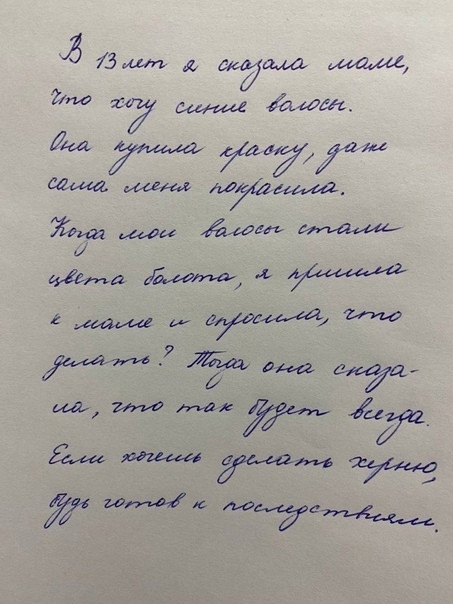 В 13 лет я сказала маме,
что хочу синие волосы.
Она купила краску, даже
сама меня покрасила.
Когда мои волосы стали
цвета болота, я пришла
к маме и спросила, что
делать? Тогда она сказа-
ла, что так будет всегда.
Если хочешь сделать херню,
будь готов к последствиям.